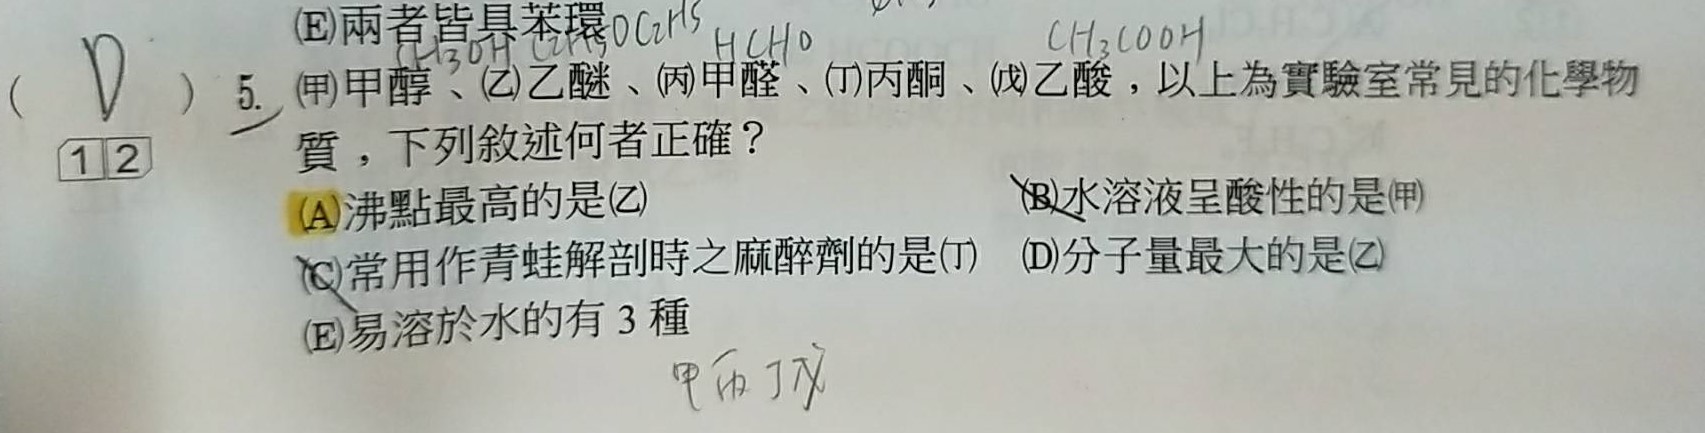 (E)兩者皆具苯環
CH3OH C2H5OC2H5 HCHO CH3COOH
( D ) 5. (甲)甲醇、(乙)乙醚、(丙)甲醛、(丁)丙酮、(戊)乙酸，以上為實驗室常見的化學物
12 質，下列敘述何者正確？
(A)沸點最高的是(乙) (B)水溶液呈酸性的是(甲)
(C)常用作青蛙解剖時之麻醉劑的是(丁) (D)分子量最大的是(乙)
(E)易溶於水的有 3 種
甲丙丁戊